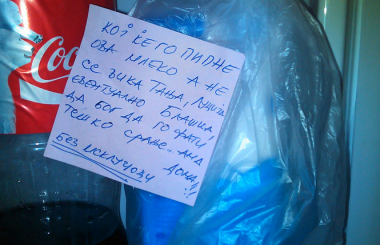 Coca
КОЈ ЌЕ ГО ПИПНЕ
ОВА МЛЕКО А НЕ
СЕ ВИКА ТАЊА,
ЕВЕНТУАЛНО БЛАШКА,
ДА БОГ ДА ГО ФАТИ
ТЕШКО СРАЊЕ ДОМА!!!
БЕЗ ИСКЛУЧОЦИ